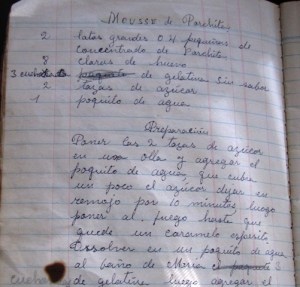 Mousse de Parchita
2 latas grandes o 4 pequeñas de
concentrado de Parchita
8 claras de huevo
3 cucharadas de gelatina sin sabor
2 tazas de azúcar
1 poquito de agua
Preparación
Poner las 2 tazas de azúcar
en una olla y agregar el
poquito de agua, que cubra
un poco el azúcar dejar en
remojo por 10 minutos luego
poner al fuego hasta que
quede un caramelo espesito.
Disolver en un poquito de agua
al baño de María 3
cucharadas de gelatina luego agregar el